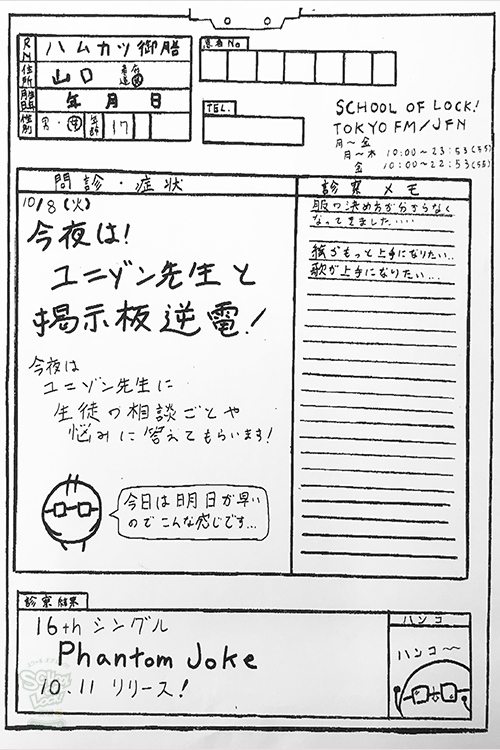 RN ハムカツ御膳
患者No
住所 山口
年 月 日
性別 男・女 年齢 17
TEL.
SCHOOL OF LOCK!
TOKYO FM/JFN
月〜金
月〜木 10:00〜23:53(55)
金 10:00〜22:53(55)
問診・症状
診察メモ
10/8(火)
今夜は!
ユニゾン先生と
掲示板逆電!
今夜は
ユニゾン先生に
生徒の相談ごとや
悩みに答えてもらいます!
今日は日月日が早い
のでこんな感じです...
服の決め方が分からなく
なってきました....
絵がもっと上手になりたい..
歌が上手になりたい...
診察結果
16thシングル
Phantom Joke
10.11 リリース!
ハンコ
ハンコ〜〜